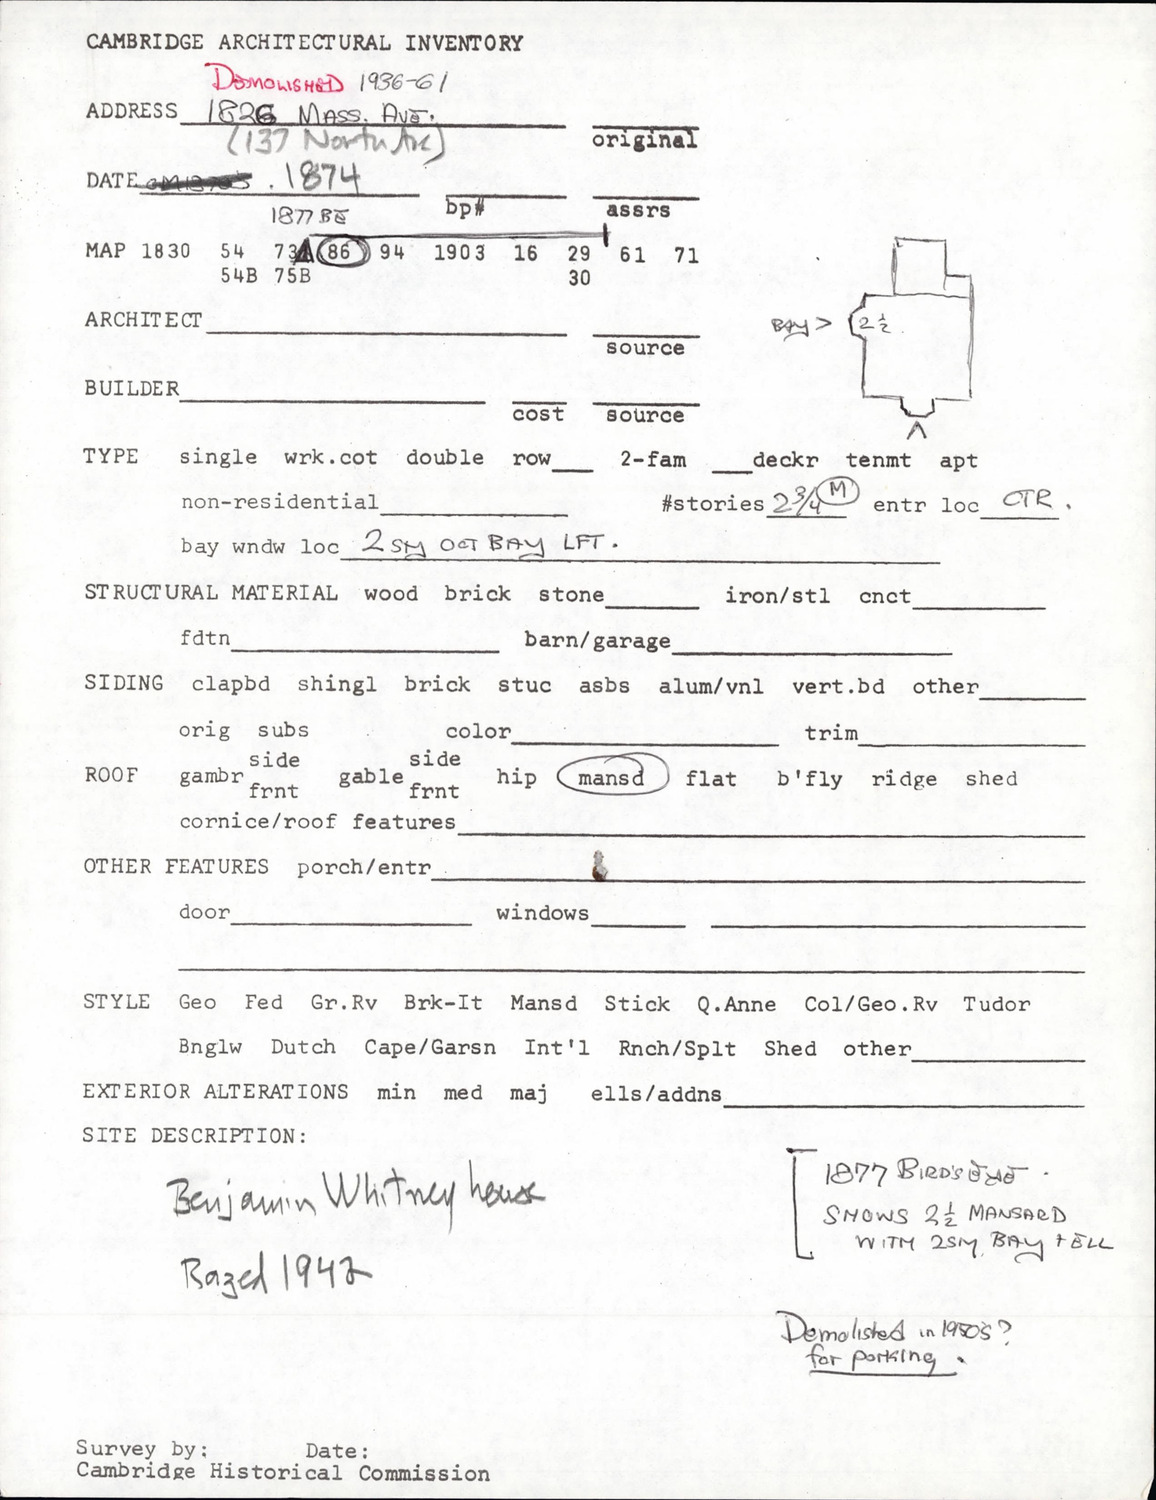 CAMBRIDGE ARCHITECTURAL INVENTORY
DEMOLISHED 1936-61
ADDRESS 1826 MASS. AVE.
(137 North Ave) original
DATE . 1874
1877 BE bp# assrs
MAP 1830 54 73A 86 94 1903 16 29 61 71
54B 75B 30
ARCHITECT
BAY > 2½.
source
BUILDER
cost source
TYPE single wrk.cot double row 2-fam deckr tenmt apt
non-residential #stories 2¾ M entr loc CTR.
bay wndw loc 2 SMY OCT BAY LFT.
STRUCTURAL MATERIAL wood brick stone iron/stl cnct
fdtn barn/garage
SIDING clapbd shingl brick stuc asbs alum/vnl vert.bd other
orig subs color trim
side side
ROOF gambr gable hip mansd flat b'fly ridge shed
frnt frnt
cornice/roof features
OTHER FEATURES porch/entr
door windows
STYLE Geo Fed Gr.Rv Brk-It Mansd Stick Q.Anne Col/Geo.Rv Tudor
Bnglw Dutch Cape/Garsn Int'l Rnch/Splt Shed other
EXTERIOR ALTERATIONS min med maj ells/addns
SITE DESCRIPTION:
Benjamin Whitney house
Razed 1942
1877 BIRD'S EYE
SHOWS 2½ MANSARD
WITH 2SMY BAY + ELL
Demolished in 1950's?
for parking.
Survey by: Date:
Cambridge Historical Commission